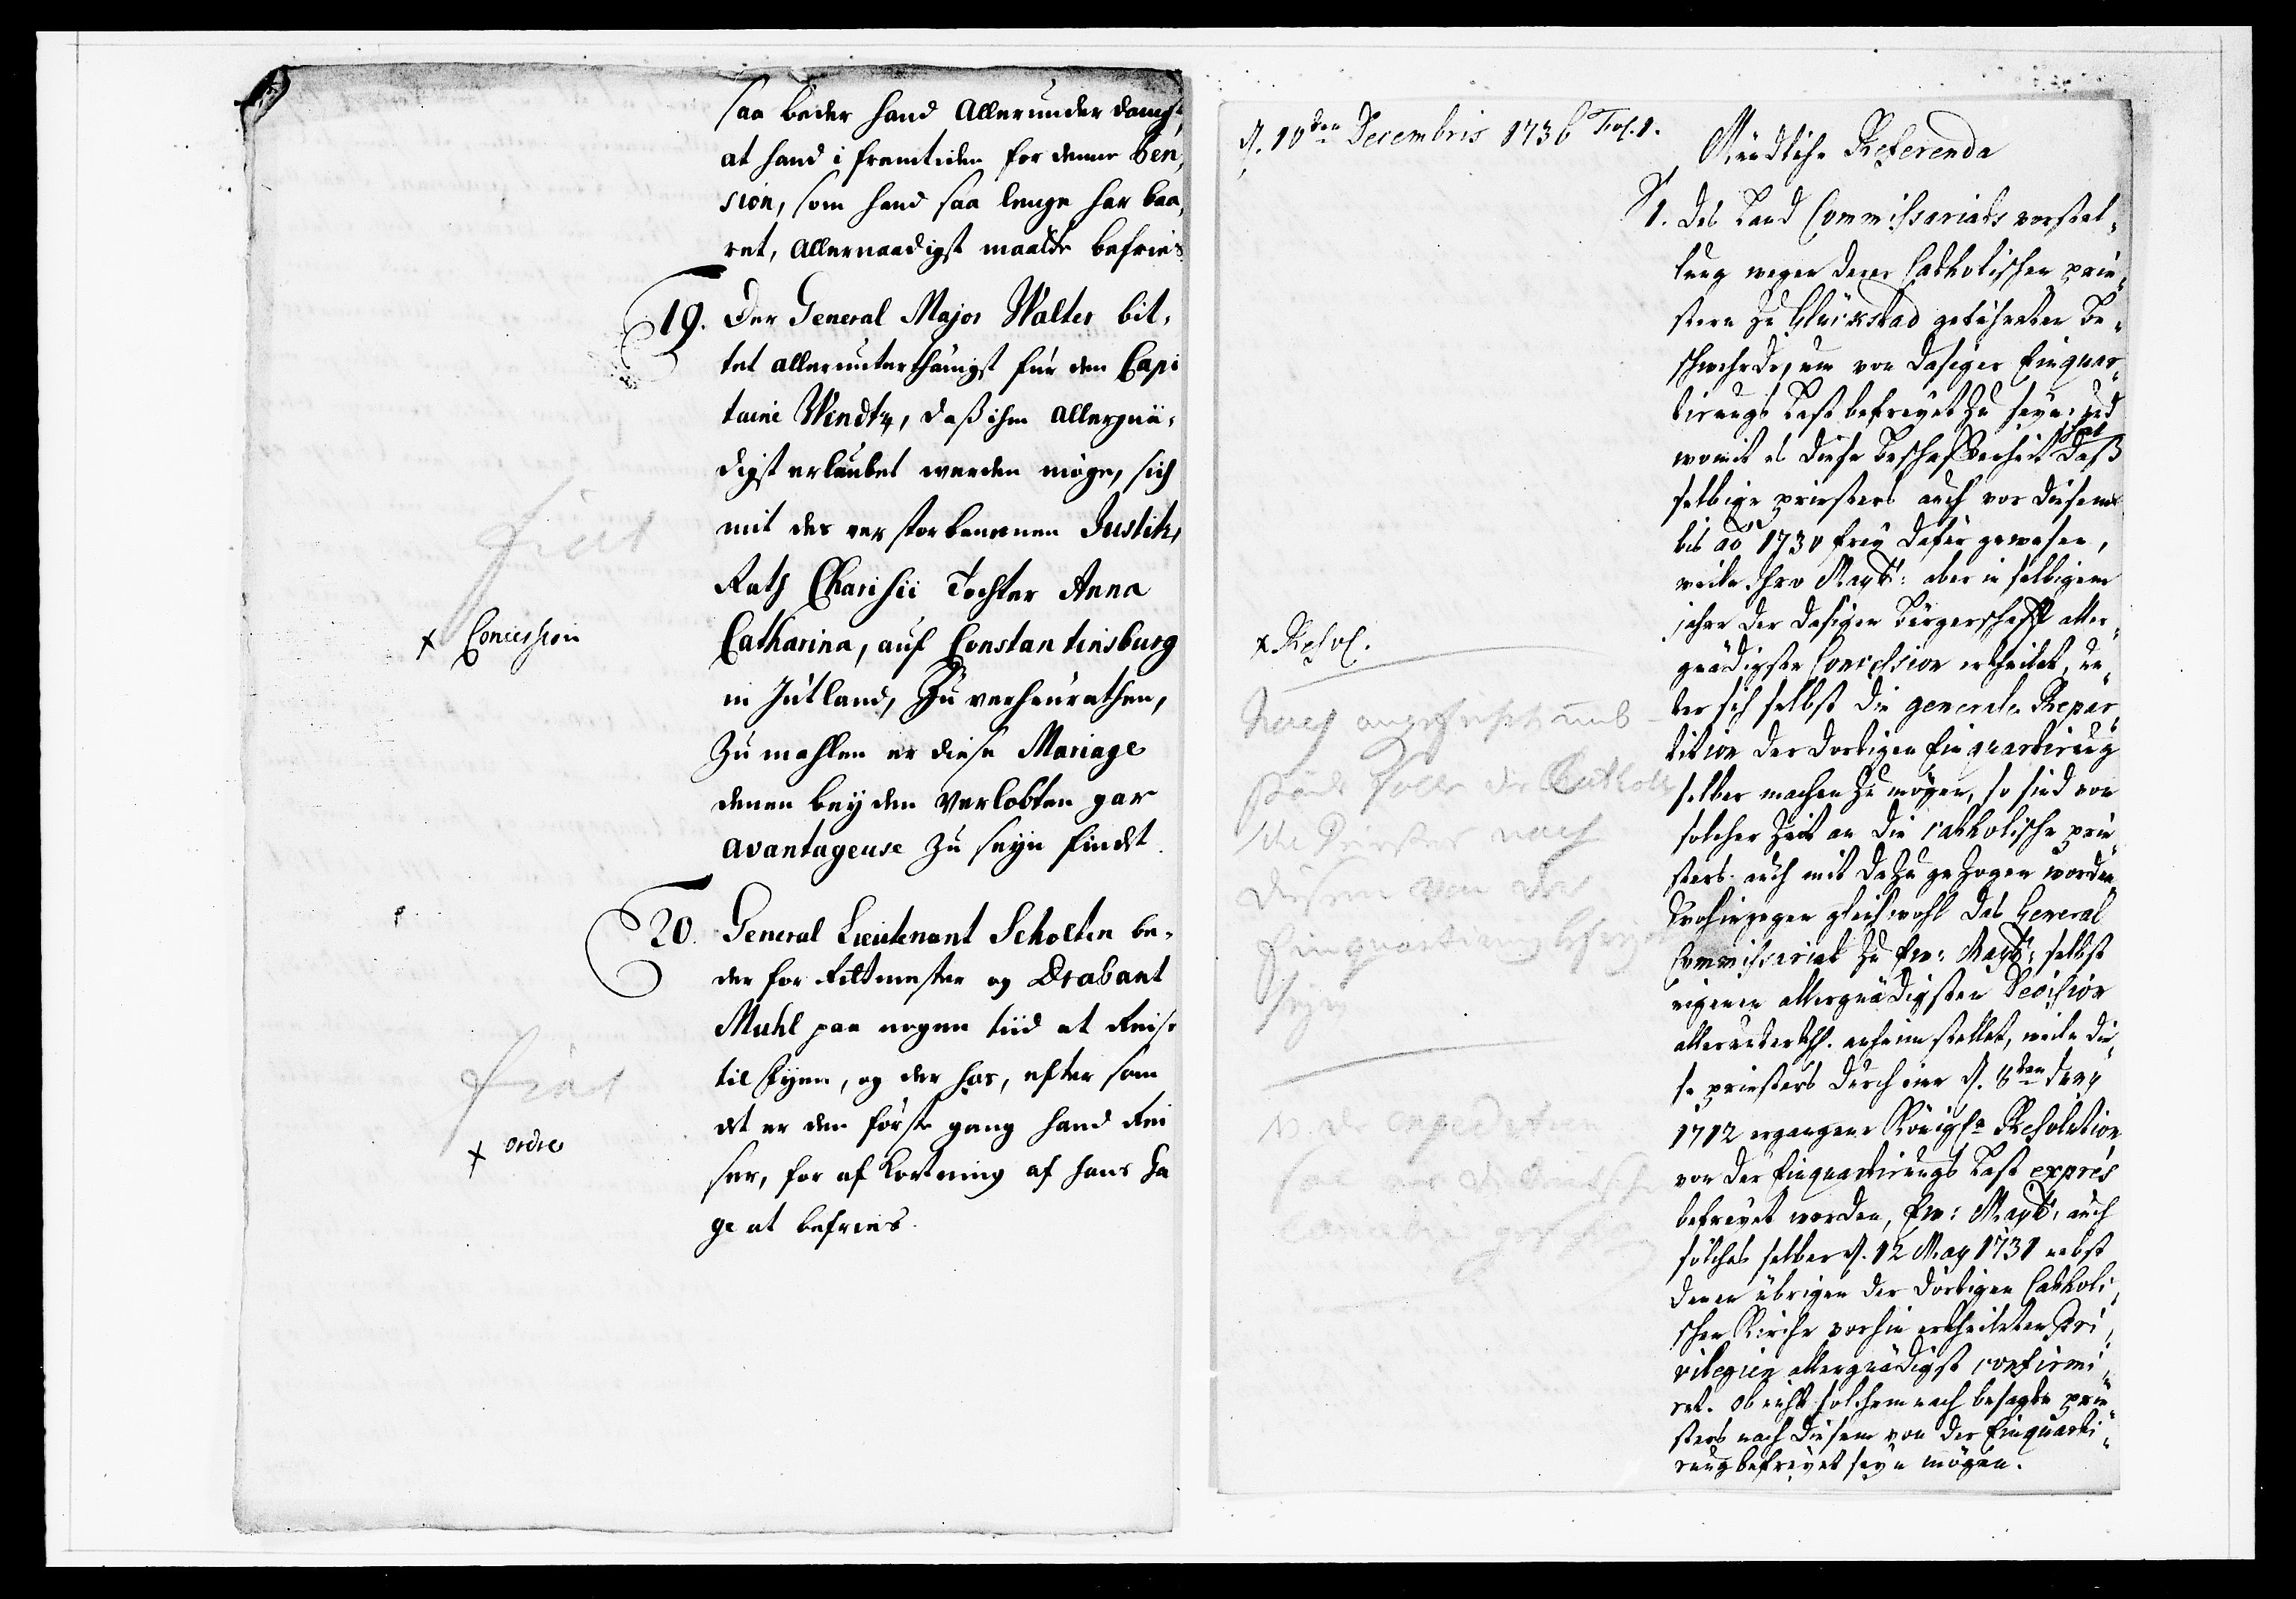 saa beder hand Allerunderdanigst,
at hand i fremtiden for denne Pen,
sion, som hand saa lenge har baa,
ret, Allernaadigst maatte befries
19. Der General Major Walter bit,
tet allerunterthänigst für den Capi
taine Windtz, daß ihm allergnä,
digst erlaubet werden möge, sich
mit des verstorbenenen Justitz,
fiat
Rath Charisii Tochter Anna
x Concession
Catharina, auf Constantinsburg
in Jütland, zu verheurathen,
zumahlen er diese Mariage
denen beyden Verlobten gar
avantageuse zu seyn findet
20. General Lieutenant Scholten be,
der for Ritmester og Drabant
Muhl paa nogen tiid at Reise
til Fyen, og der hos, efter som
fiat
det er den förste gang hand Rei
x ordre
ser, for afkortning af hans Ga
ge at befries.
d. 10den Decembris 1736 Fol. 1.
Mündliche Referenda
1. Des Land Commissariats vorstel,
lung wegen derer Catholischen prie,
stern zu Glückstad geführeten Be,
schwehrde, um von dasiger Einquar,
tirungs Last befreyet zu seyn: und
womit es diese Beschaffenheit hat daß
selbige priesters auch vor diesem
bis ao 1730 frey dafür gewesen,
weiln Ihro Maytt: aber in selbigem
jahre der dasigen Bürgerschafft aller,
x Resol.
gnädigste Concession ertheilet, un,
ter sich selbst die generale Repar,
tition der dortigen Einquartirung
selber machen zu mögen, so sind von
solcher Zeit an die catholische prie,
sters auch mit dazu gezogen worden
Wohingegen gleichwohl das General
Commissariat zu Ew: Maytt: selbst
eigenen allergnädigsten Decission
allerunterth. anheim stellet, weiln die,
se priesters durch eine d. 8ten
1712 ergangene Königle Resolution
von der Einquartirungs Last exprés
befreyet worden, Ew: Maytt: auch
solches selber d. 12 May 1731 nebst
denen übrigen der dortigen Catholi,
schen Kirche vorhin ertheileten Pri,
vilegien allergnädigst confirmi,
ret. Ob nicht solchem nach besagte prie,
sters nach diesem von der Einquarti,
rung befreyet seyn mögen.
Nach angeführten umb
ständ sollen die Catholi
sche Priester nach
diesem von der
Einquartirung befreyet
seyn